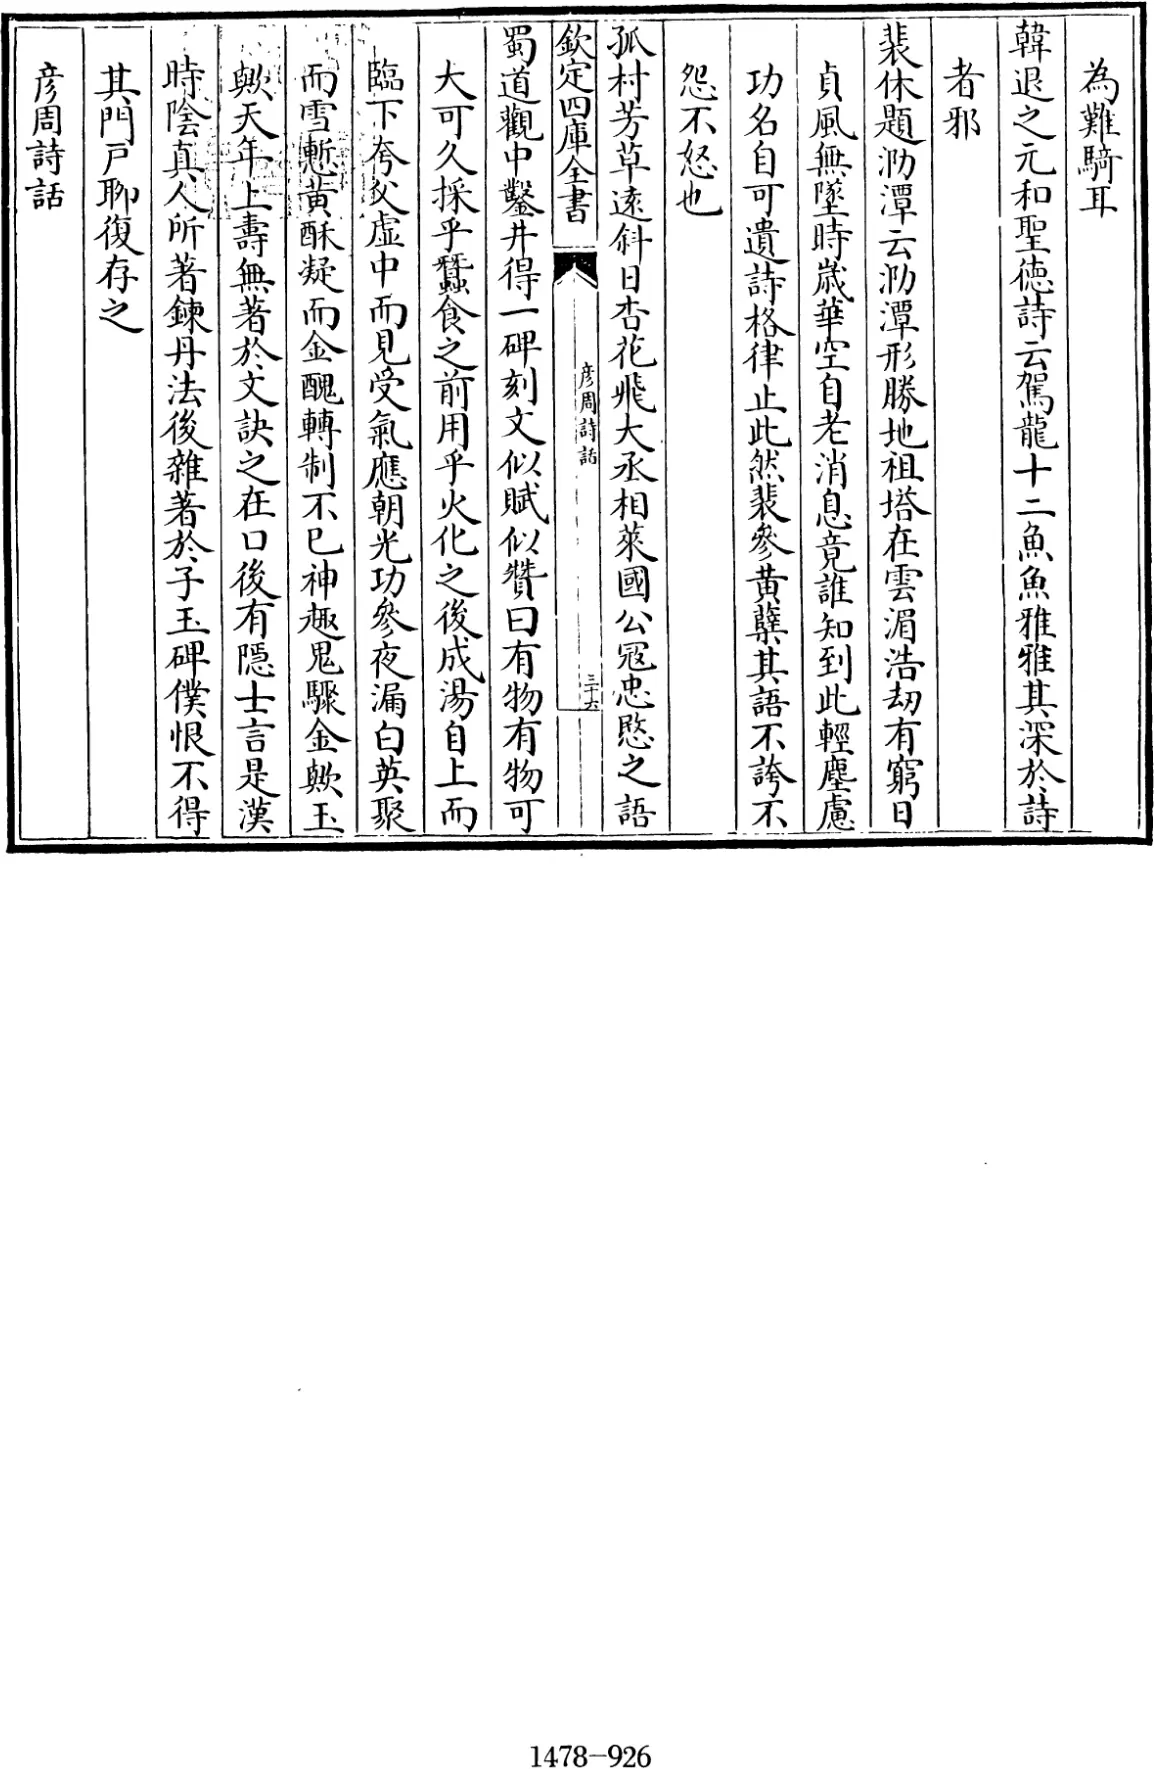 為難騎耳
韓退之元和聖德詩云駕龍十二魚魚雅雅其深於詩
者邪
裴休題泐潭云泐潭形勝地祖塔在雲湄浩劫有窮日
貞風無墜時歲華空自老消息竟誰知到此輕塵慮
功名自可遺詩格律止此然裴參黄蘗其語不誇不
怨不怒也
孤村芳草遠斜日杏花飛大丞相萊國公冦忠愍之語
欽定四庫全書
彦周詩話
三十六
蜀道觀中鑿井得一碑刻文似賦似贊曰有物有物可
大可久採乎蠶食之前用乎火化之後成湯自上而
臨下夸父虚中而見受氣應朝光功參夜漏白英聚
而雪慙黄酥凝而金醜轉制不已神趣鬼驟金歟玉
歟天年上壽無著於文訣之在口後有隱士言是漢
時陰真人所著鍊丹法後雜著於子玉碑僕恨不得
其門戸聊復存之
彦周詩話
1478-926